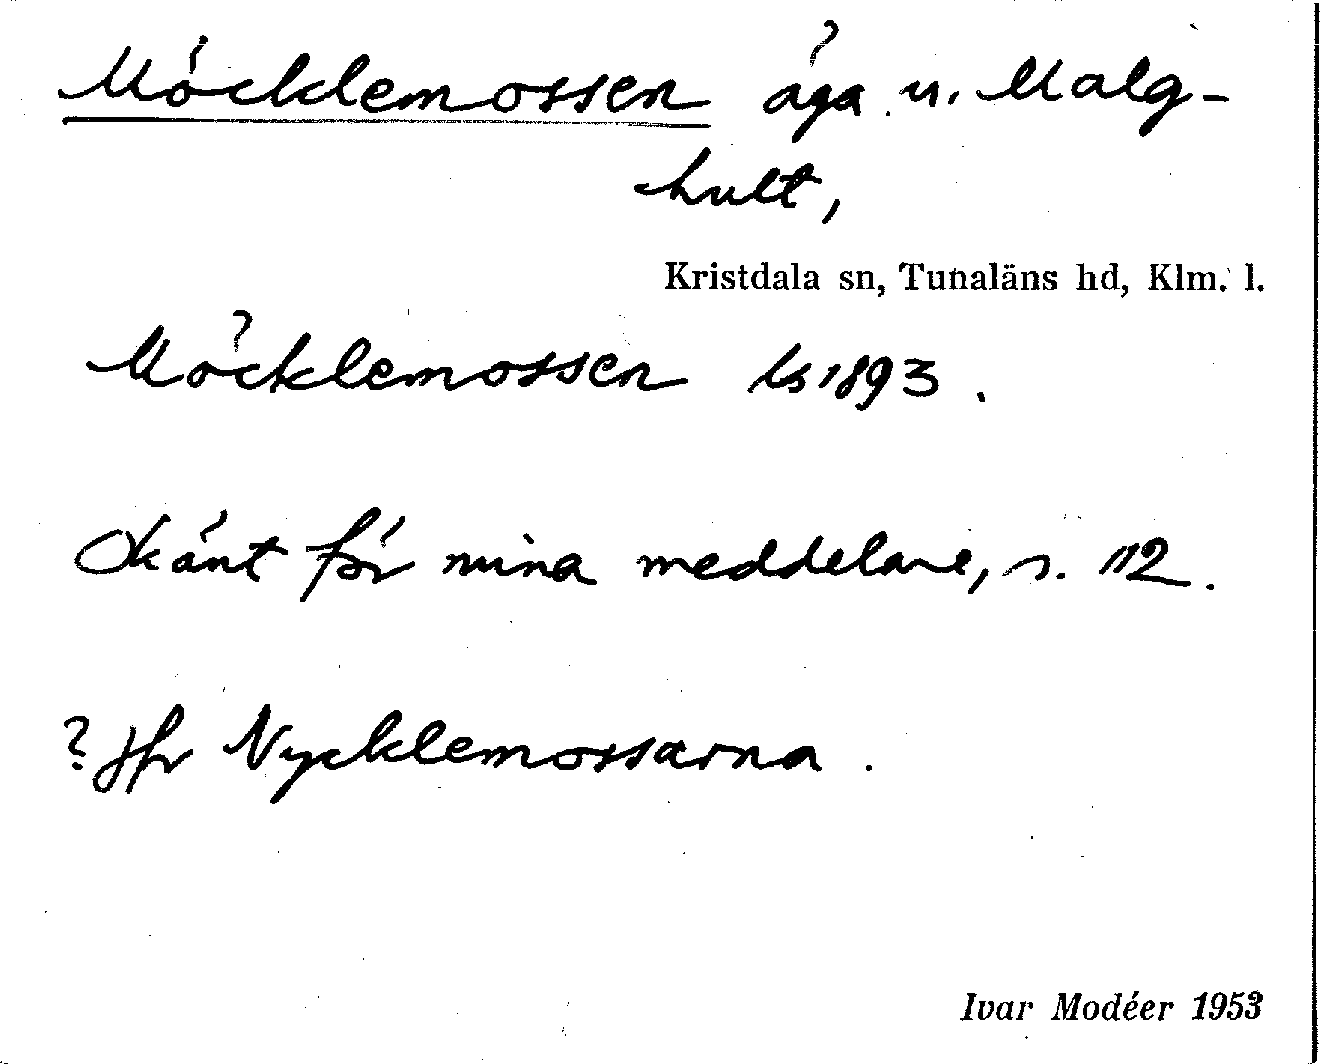 Möcklemossen äga u. Malg-
hult,
Kristdala sn, Tunaläns hd, Klm. l.
Möcklemossen ls 1893.
Okänt för mina meddelare, s. 112.
? Jfr Nycklemossarna.
Ivar Modéer 1953